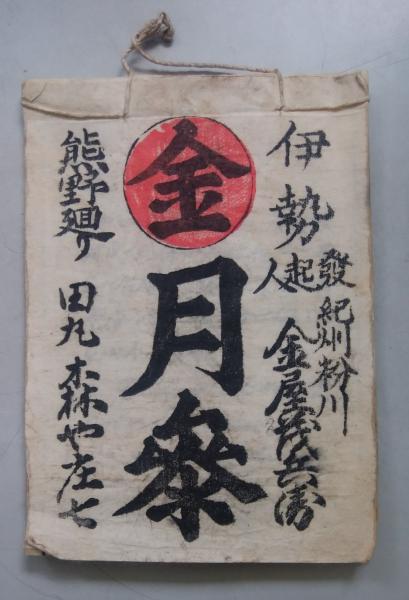 伊勢
發起人
紀州粉川
金屋茂兵衛
金
月參
熊野廻り
田丸 大森や庄七